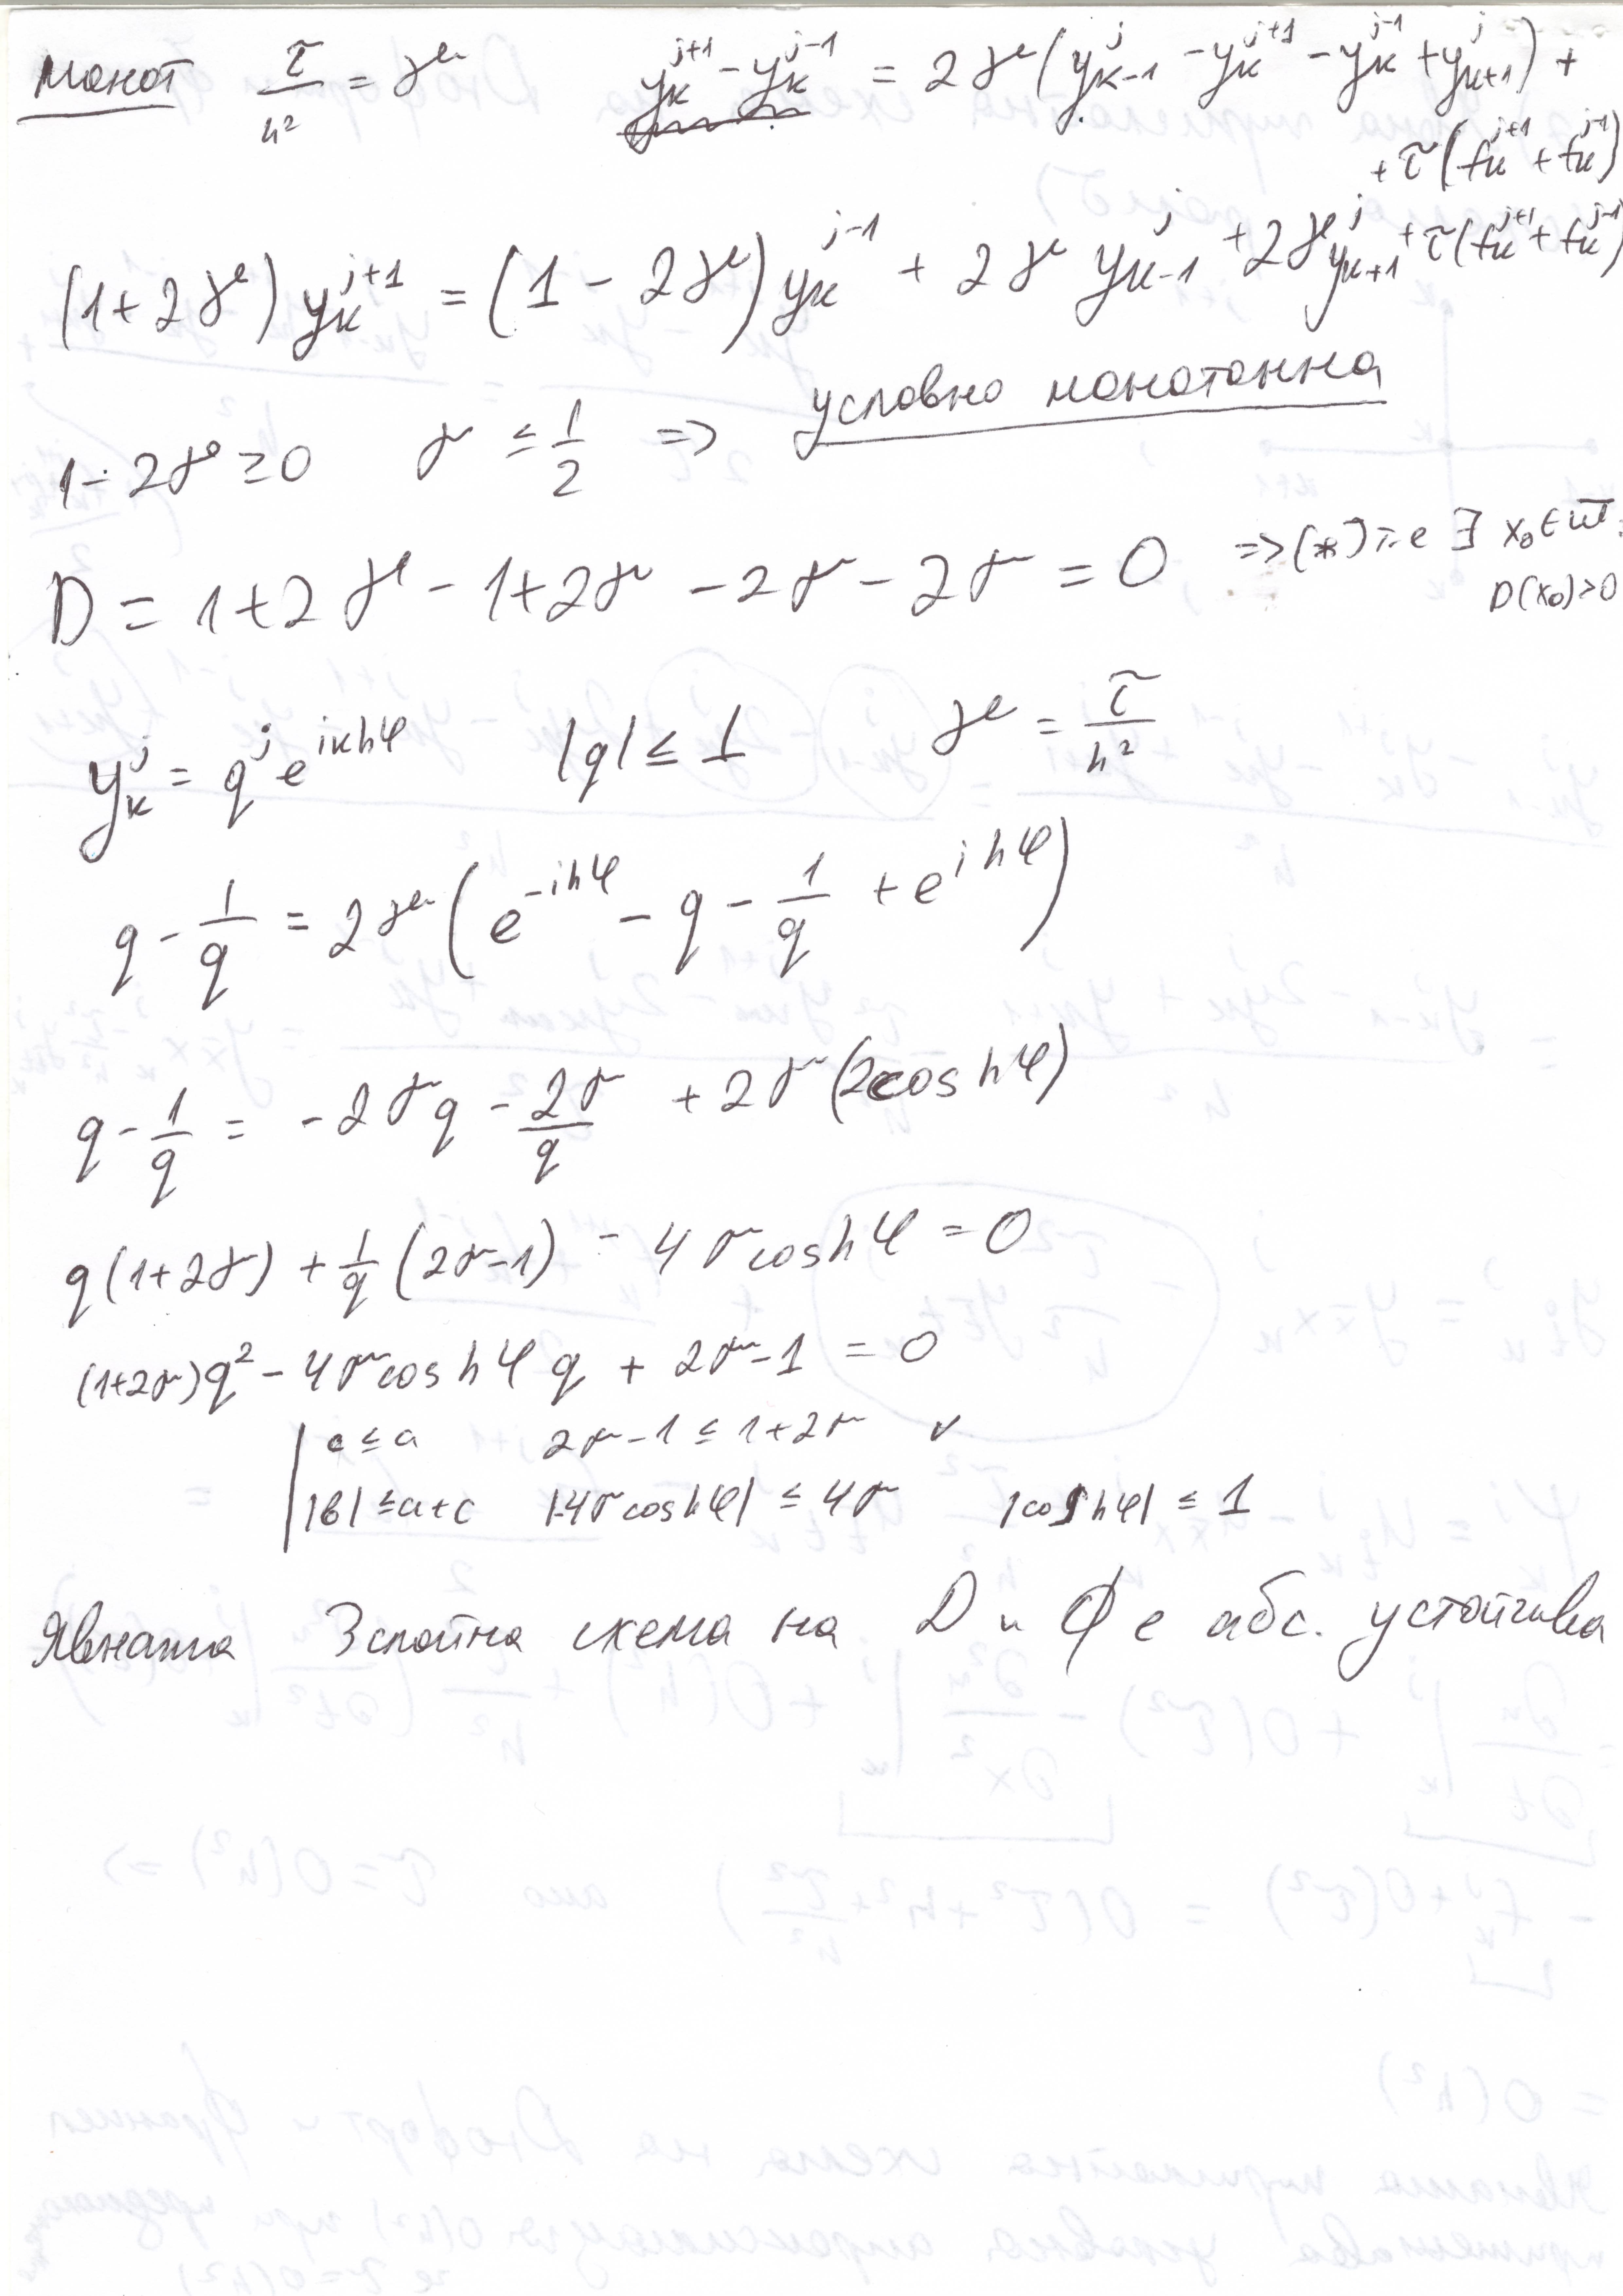 монот τ/h² = γ   y_k^{j+1} - y_k^{j-1} = 2γ(y_{k-1}^j - y_k^{j+1} - y_k^{j-1} + y_{k+1}^j) +
+ τ(f_k^{j+1} + f_k^{j-1})
(1+2γ) y_k^{j+1} = (1-2γ) y_k^{j-1} + 2γ y_{k-1}^j + 2γ y_{k+1}^j + τ(f_k^{j+1} + f_k^{j-1})
1-2γ ≥ 0   γ ≤ 1/2 => условно монотонна
D = 1+2γ - 1+2γ - 2γ - 2γ = 0 => (*) т.е ∃ x₀ ∈ ω̄ :
D(x₀)>0
y_k^j = q^j e^{ikhφ}   |q| ≤ 1   γ = τ/h²
q - 1/q = 2γ(e^{-ihφ} - q - 1/q + e^{ihφ})
q - 1/q = -2γq - 2γ/q + 2γ(2cos hφ)
q(1+2γ) + 1/q (2γ-1) - 4γ cos hφ = 0
(1+2γ)q² - 4γ cos hφ q + 2γ-1 = 0
c ≤ a   2γ-1 ≤ 1+2γ ✓
|b| ≤ a+c   |-4γ cos hφ| ≤ 4γ   |cos hφ| ≤ 1
Явната 3слойна схема на D и Ф е абс. устойчива